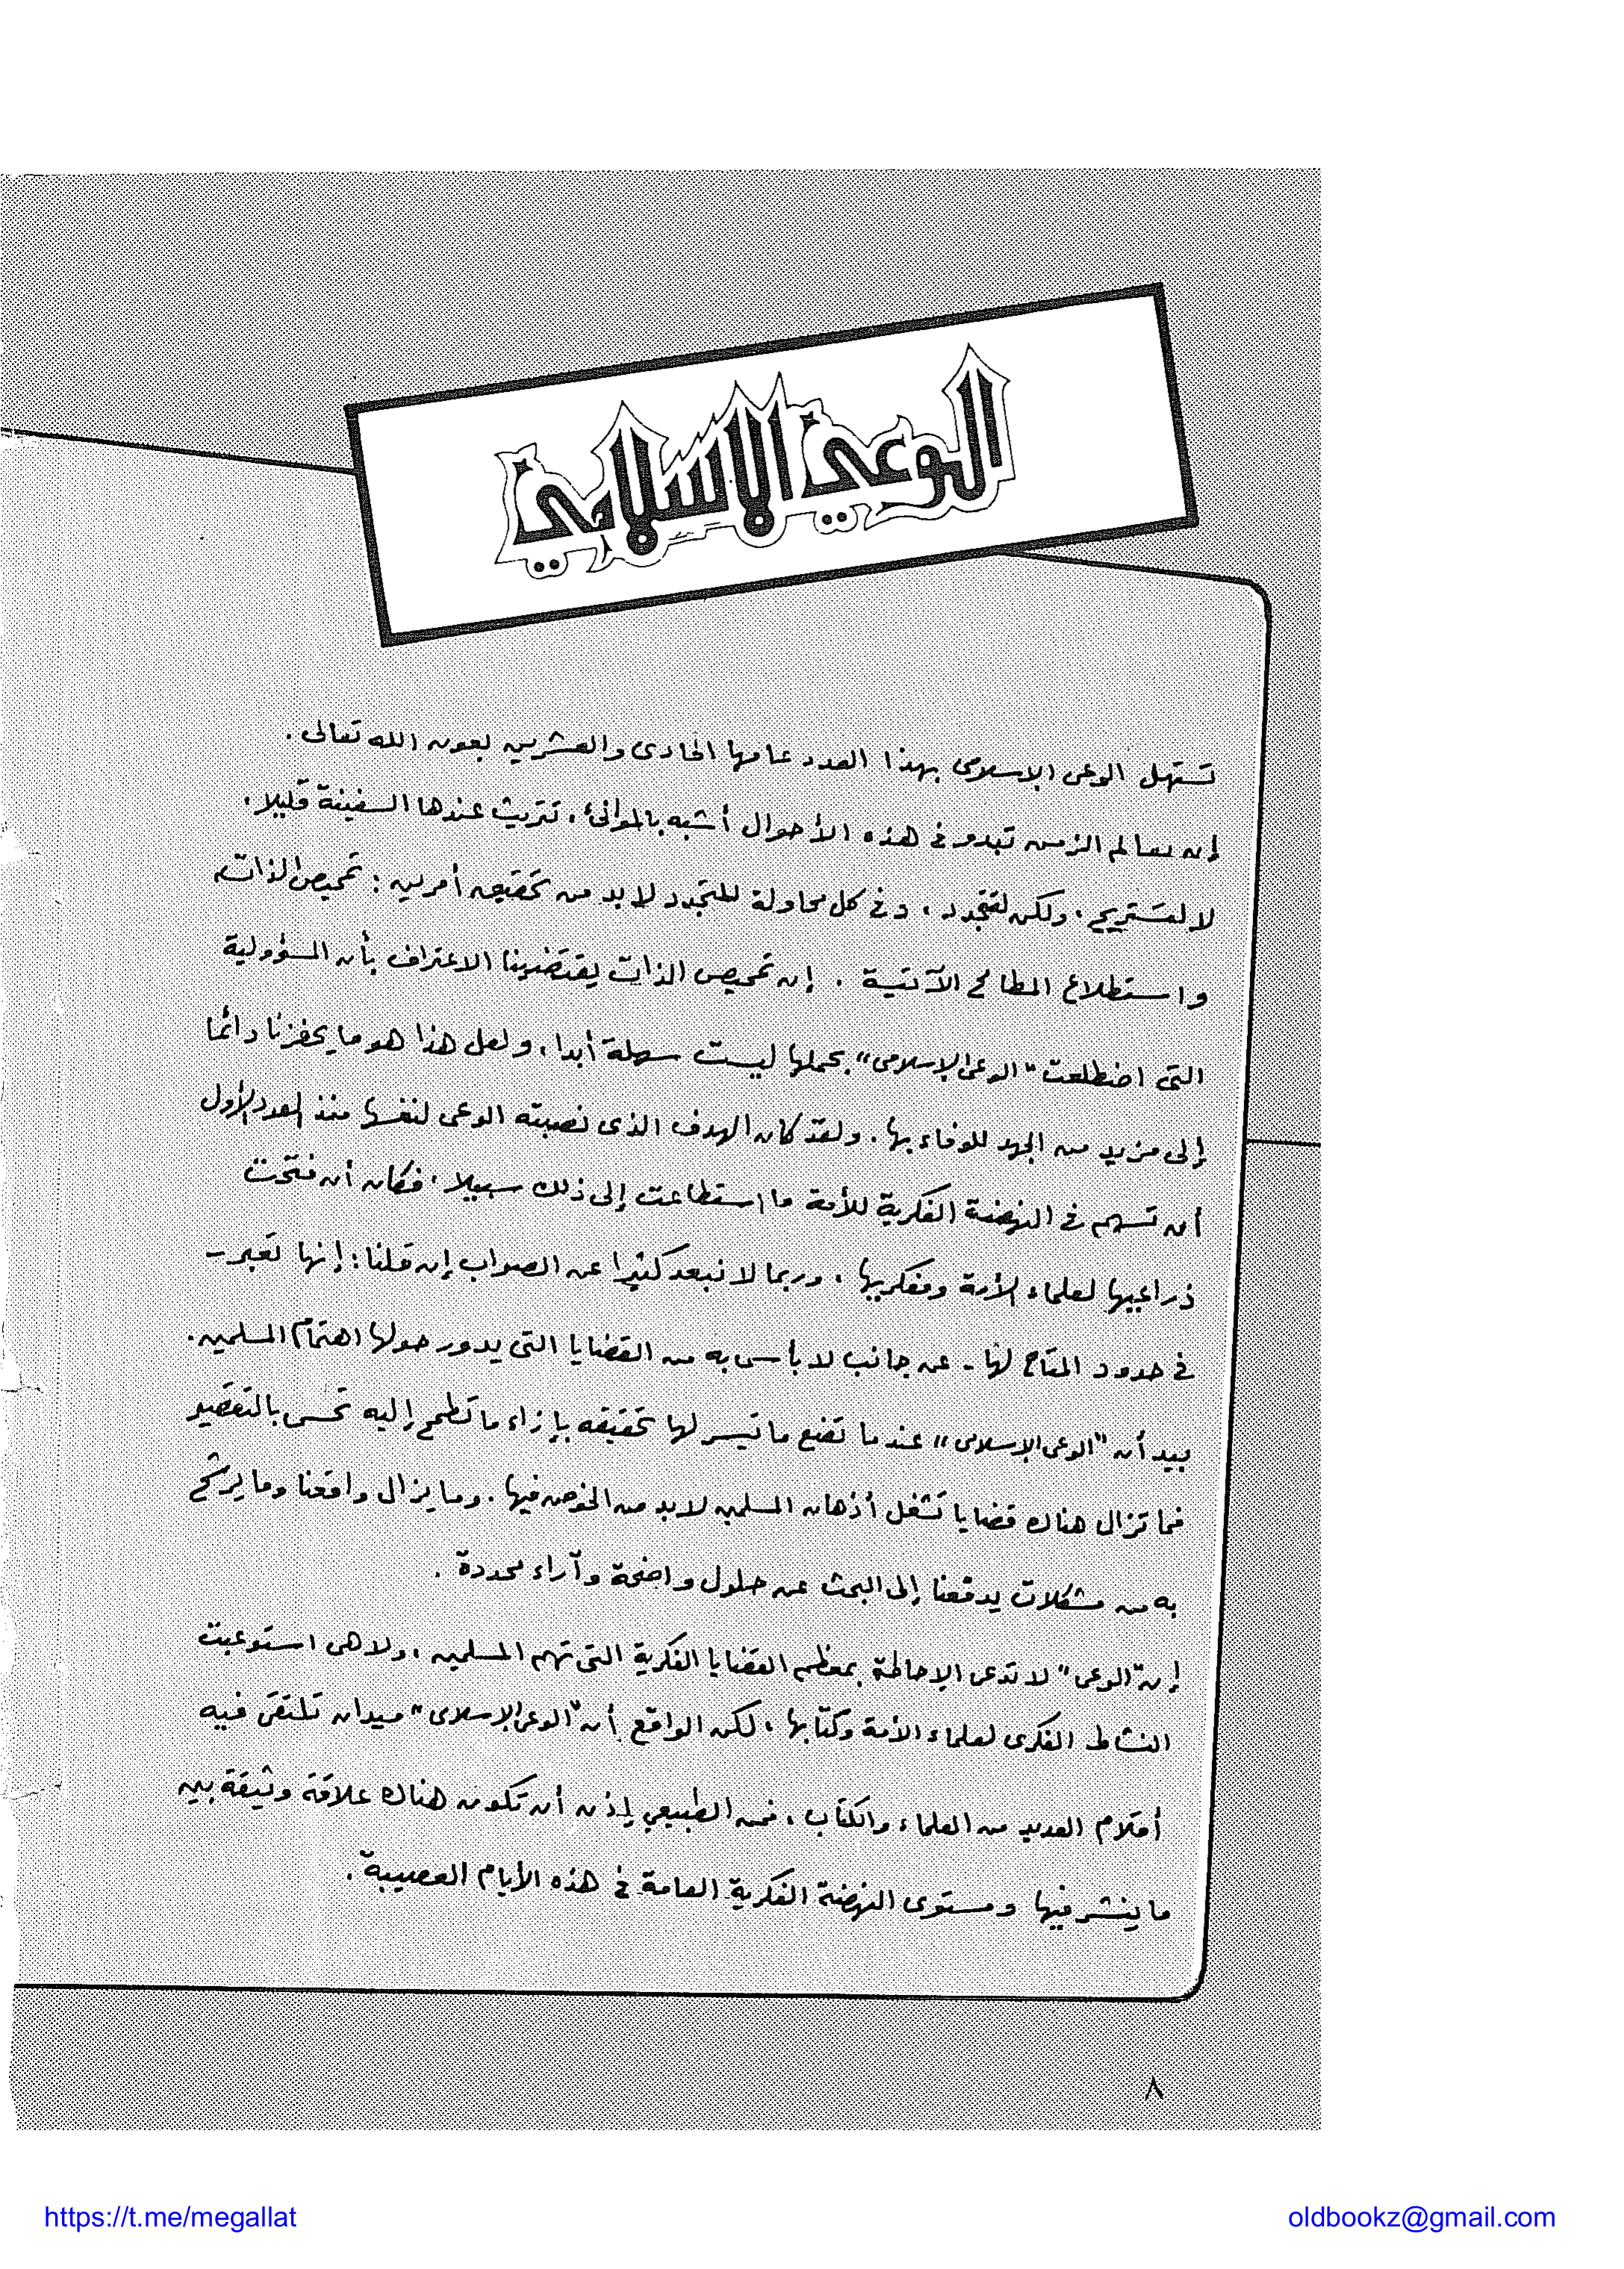 الوعي الإسلامي
تستهل الوعى الإسلامى بهذا العدد عامها الحادى والعشرين بعون الله تعالى .
إن معالم الزمن تبدو فى هذه الأحوال أشبه بالموانئ ، تتريث عندها السفينة قليلا ،
لا لتستريح ، ولكن لتتجدد ، وفى كل محاولة للتجدد لا بد من تحقيق أمرين : تمحيص الذات
واستطلاع المطامح الآتية . إن تمحيص الذات يقتضينا الاعتراف بأن المسؤولية
التى اضطلعت "الوعى الإسلامى" بحملها ليست سهلة أبدا ، ولعل هذا هو ما يحفزنا دائما
إلى مزيد من الجهد للوفاء بها . ولقد كان الهدف الذى نصبته الوعى لنفسها منذ العدد الأول
أن تسهم فى النهضة الفكرية للأمة ما استطاعت إلى ذلك سبيلا ، فكان أن فتحت
ذراعيها لعلماء الأمة ومفكريها ، وربما لا نبعد كثيرا عن الصواب إن قلنا : إنها تعبر -
فى حدود المتاح لها - عن جانب لا بأس به من القضايا التى يدور حولها اهتمام المسلمين .
بيد أن "الوعى الإسلامى" عندما تضع ما تيسر لها تحقيقه بإزاء ما تطمح إليه تحس بالتقصير
فما تزال هناك قضايا تشغل أذهان المسلمين لا بد من الخوض فيها . وما يزال واقعنا وما يرشح
به من مشكلات يدفعنا إلى البحث عن حلول واضحة وآراء محددة .
إن "الوعى" لا تدعى الإحاطة بمعظم القضايا الفكرية التى تهم المسلمين ، ولا هى استوعبت
النشاط الفكرى لعلماء الأمة وكتابها ، لكن الواقع أن "الوعى الإسلامى" ميدان تلتقى فيه
أقلام العديد من العلماء والكتاب ، فمن الطبيعي إذن أن تكون هناك علاقة وثيقة بين
ما ينشر فيها ومستوى النهضة الفكرية العامة فى هذه الأيام العصيبة .
٨
https://t.me/megallat
oldbookz@gmail.com